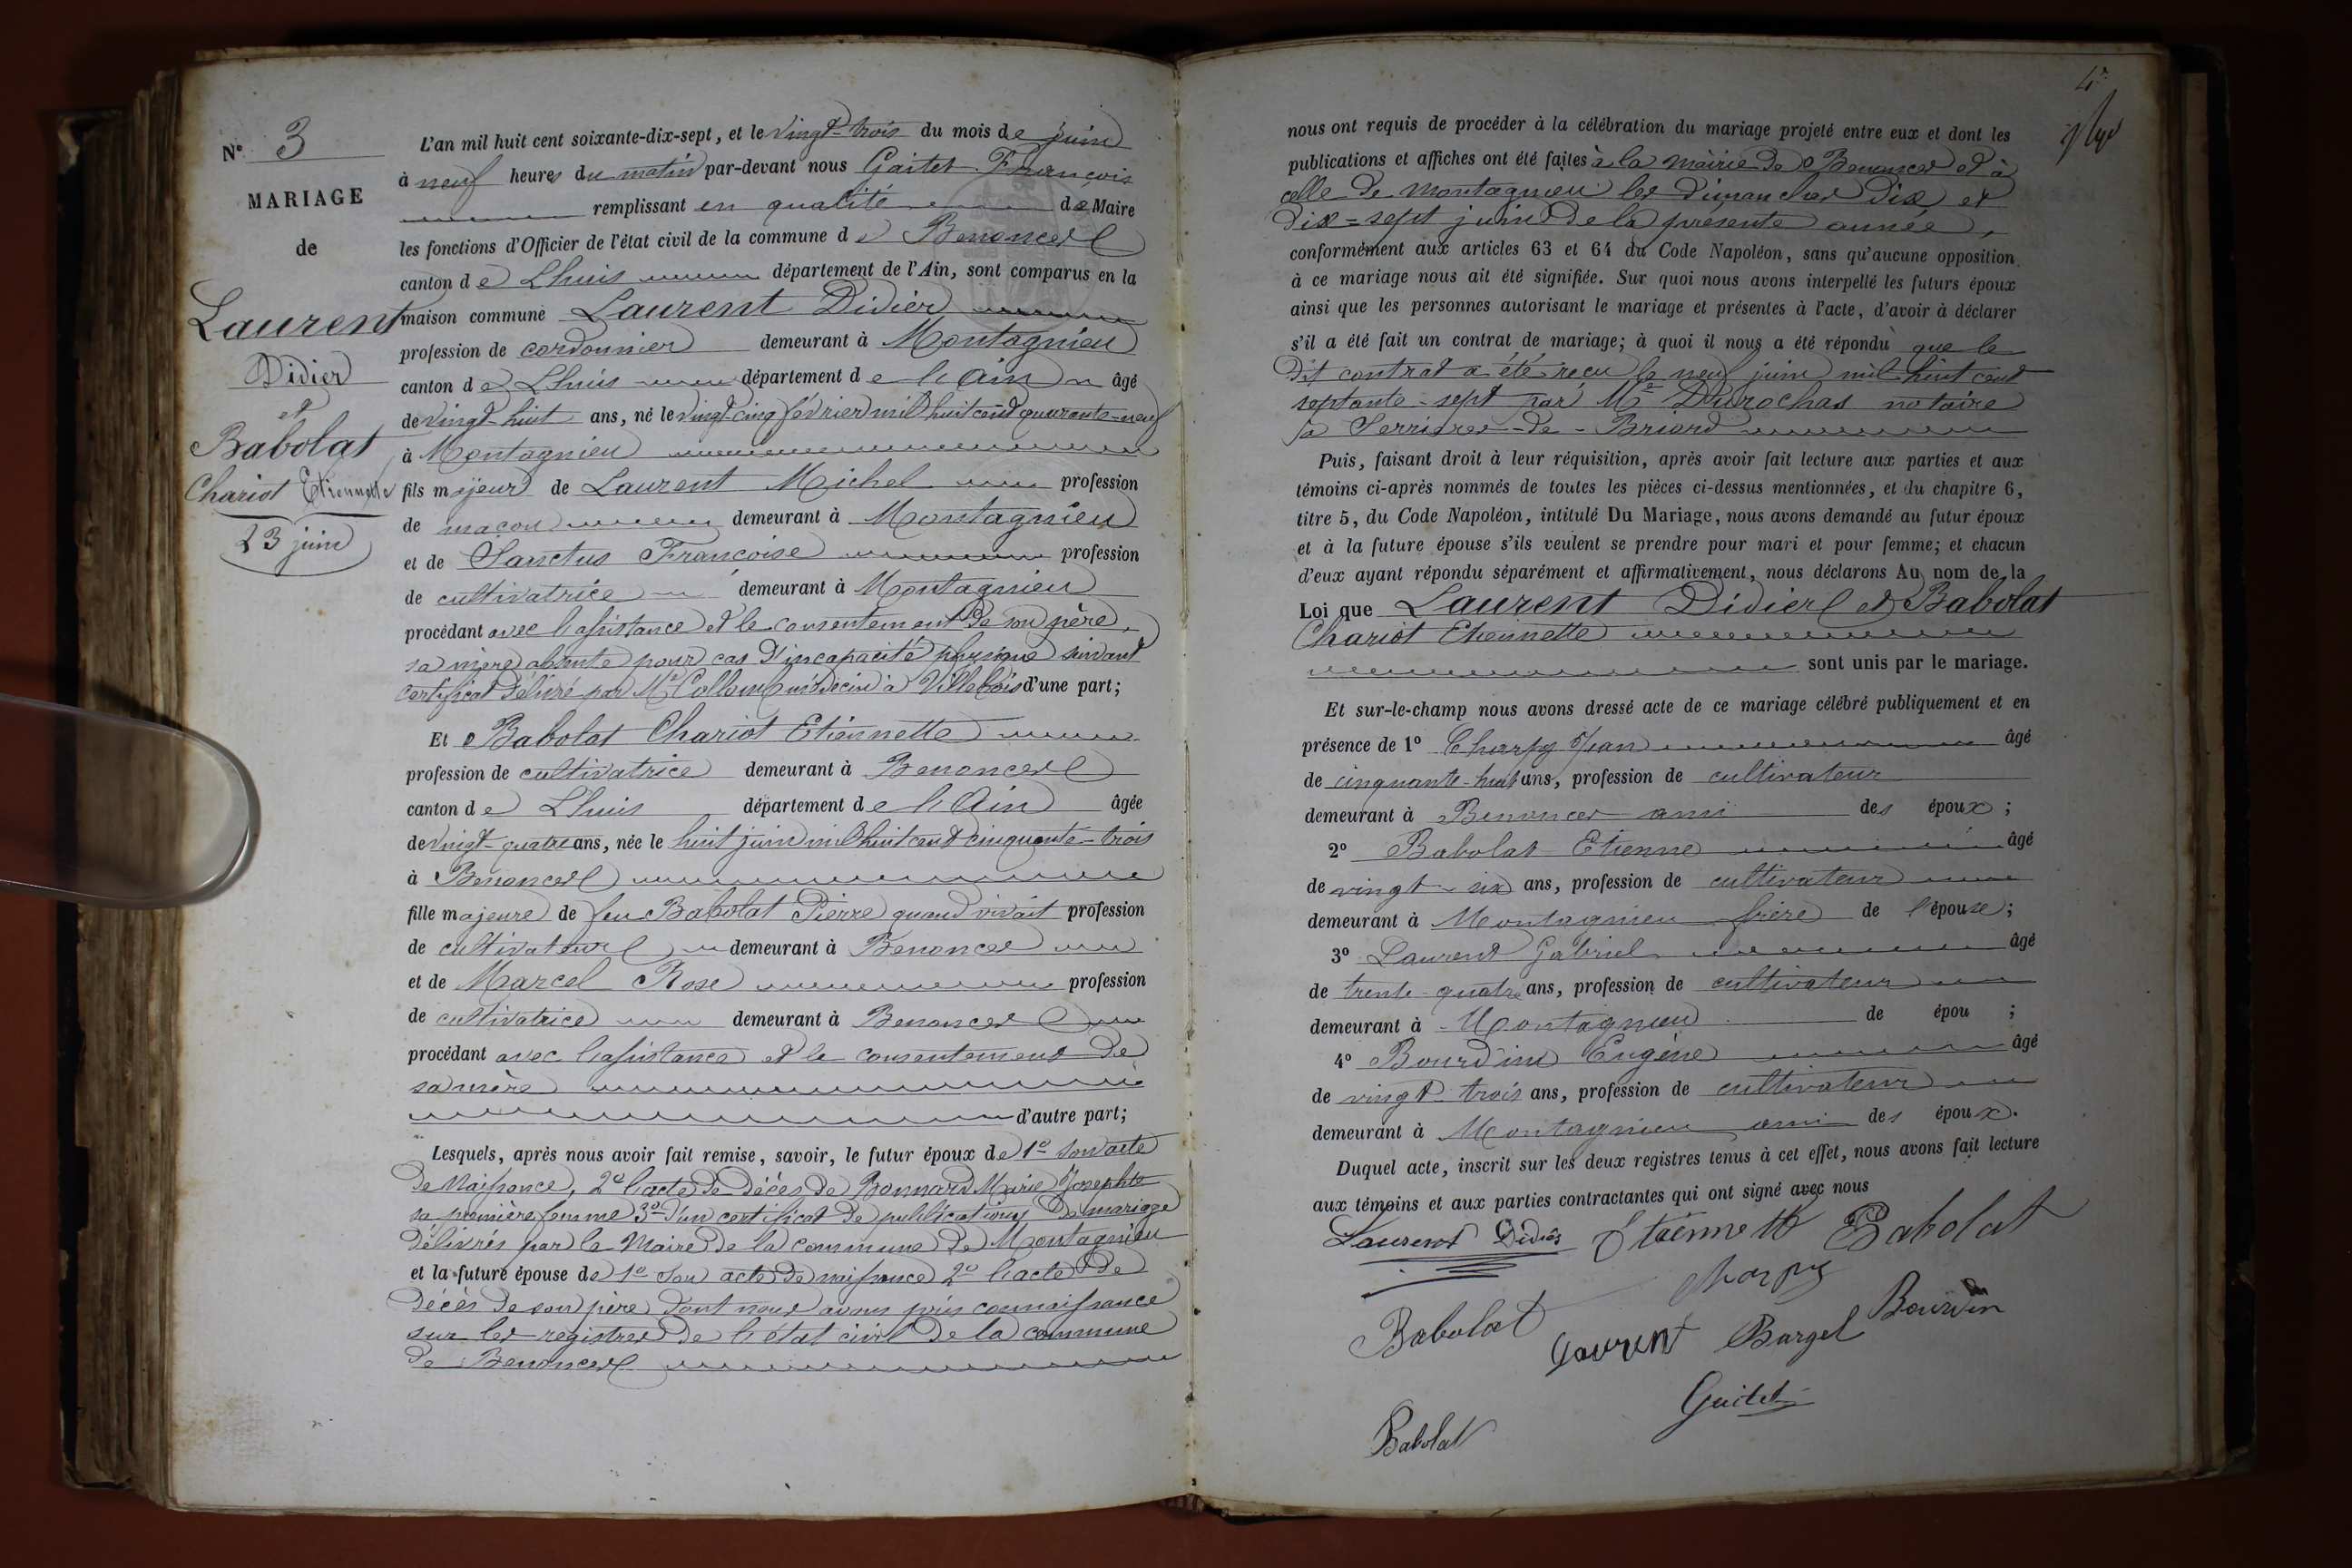 N° 3
MARIAGE
de
Laurent
Didier
et
Babolat
Chariot Etiennette
23 juin
L'an mil huit cent soixante-dix-sept, et le vingt-trois du mois de juin
à neuf heures du matin par-devant nous Gaitet François
remplissant en qualité de Maire
les fonctions d'Officier de l'état civil de la commune de Benonces
canton de Lhuis département de l'Ain, sont comparus en la
maison commune Laurent Didier
profession de cordonnier demeurant à Montagnieu
canton de Lhuis département de l'Ain âgé
de vingt-huit ans, né le vingt-cinq février mil huit cent quarante-neuf
à Montagnieu
fils majeur de Laurent Michel profession
de maçon demeurant à Montagnieu
et de Sanctus Françoise profession
de cultivatrice demeurant à Montagnieu
procédant avec l'assistance et le consentement de son père,
sa mère absente pour cas d'incapacité physique suivant
certificat délivré par Mr Collomb médecin à Villebois d'une part;
Et Babolat Chariot Etiennette
profession de cultivatrice demeurant à Benonces
canton de Lhuis département de l'Ain âgée
de vingt-quatre ans, née le huit juin mil huit cent cinquante-trois
à Benonces
fille majeure de feu Babolat Pierre quand vivait profession
de cultivateur demeurant à Benonces
et de Marcel Rose profession
de cultivatrice demeurant à Benonces
procédant avec l'assistance et le consentement de
sa mère
d'autre part;
Lesquels, après nous avoir fait remise, savoir, le futur époux de 1° son acte
de naissance, 2° l'acte de décès de Bonnard Marie Josephte
sa première femme 3° d'un certificat de publications de mariage
délivrés par le Maire de la commune de Montagnieu
et la future épouse de 1° son acte de naissance 2° l'acte de
décès de son père dont nous avons pris connaissance
sur les registres de l'état civil de la commune
de Benonces
4
nous ont requis de procéder à la célébration du mariage projeté entre eux et dont les
publications et affiches ont été faites à la mairie de Benonces et à
celle de Montagnieu les dimanches dix et
dix=sept juin de la présente année,
conformément aux articles 63 et 64 du Code Napoléon, sans qu'aucune opposition
à ce mariage nous ait été signifiée. Sur quoi nous avons interpellé les futurs époux
ainsi que les personnes autorisant le mariage et présentes à l'acte, d'avoir à déclarer
s'il a été fait un contrat de mariage; à quoi il nous a été répondu que le
dit contrat a été reçu le neuf juin mil huit cent
septante-sept par Me Durochas notaire
à Serrières-de-Briord
Puis, faisant droit à leur réquisition, après avoir fait lecture aux parties et aux
témoins ci-après nommés de toutes les pièces ci-dessus mentionnées, et du chapitre 6,
titre 5, du Code Napoléon, intitulé Du Mariage, nous avons demandé au futur époux
et à la future épouse s'ils veulent se prendre pour mari et pour femme; et chacun
d'eux ayant répondu séparément et affirmativement, nous déclarons Au nom de la
Loi que Laurent Didier et Babolat
Chariot Etiennette
sont unis par le mariage.
Et sur-le-champ nous avons dressé acte de ce mariage célébré publiquement et en
présence de 1° Charpy Jean âgé
de cinquante-huit ans, profession de cultivateur
demeurant à Benonces ami des époux;
2° Babolat Etienne âgé
de vingt-six ans, profession de cultivateur
demeurant à Montagnieu frère de l'épouse;
3° Laurent Gabriel âgé
de trente-quatre ans, profession de cultivateur
demeurant à Montagnieu de épou ;
4° Bourdin Eugène âgé
de vingt-trois ans, profession de cultivateur
demeurant à Montagnieu ami des époux.
Duquel acte, inscrit sur les deux registres tenus à cet effet, nous avons fait lecture
aux témoins et aux parties contractantes qui ont signé avec nous
Laurent Didier Etiennette Babolat
Charpy
Babolat Laurent Bargel Bourdin
Gaitet
Babolat